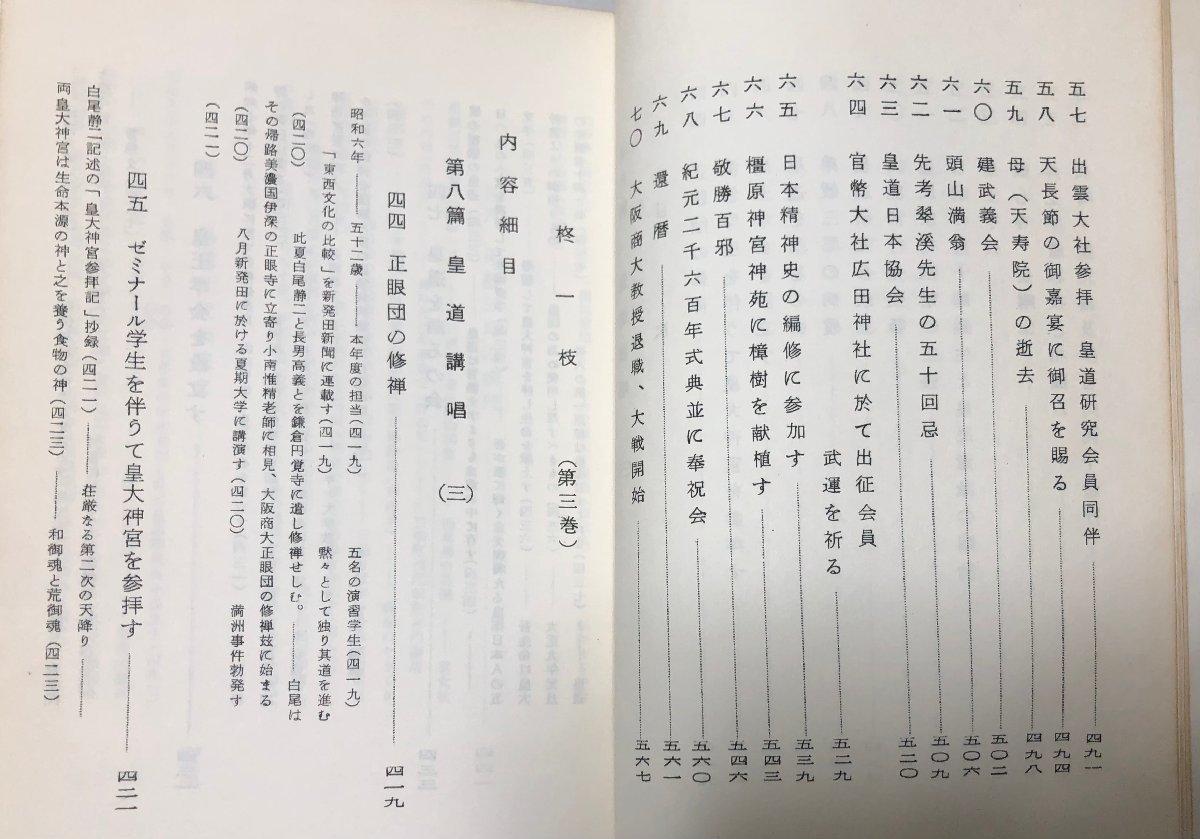 五七 出雲大社参拝 皇道研究会員同伴 四九一
五八 天長節の御嘉宴に御召を賜る 四九四
五九 母（天寿院）の逝去 四九八
六〇 建武義会 五〇二
六一 頭山満翁 五〇六
六二 先考翠溪先生の五十回忌 五〇九
六三 皇道日本協会 五二〇
六四 官幣大社広田神社に於て出征会員
武運を祈る 五二九
六五 日本精神史の編修に参加す 五三九
六六 橿原神宮神苑に樟樹を献植す 五四三
六七 敬勝百邪 五四六
六八 紀元二千六百年式典並に奉祝会 五六〇
六九 還暦 五六一
七〇 大阪商大教授退職、大戦開始 五六七
柊一枝（第三巻）
内容細目
第八篇 皇道講唱（三）
四四 正眼団の修禅 四一九
昭和六年 五十二歳 本年度の担当（四一九） 五名の演習学生（四一九）
「東西文化の比較」を新発田新聞に連載す（四一九） 黙々として独り其道を進む
（四二〇） 此夏白尾静二と長男高義とを鎌倉円覚寺に遣し修禅せしむ。 白尾は
その帰路美濃国伊深の正眼寺に立寄り小南惟精老師に相見、大阪商大正眼団の修禅玆に始まる
（四二〇） 八月新発田に於ける夏期大学に講演す（四二〇） 満洲事件勃発す
（四二一）
四五 ゼミナール学生を伴うて皇大神宮を参拝す 四二一
白尾静二記述の「皇大神宮参拝記」抄録（四二一） 荘厳なる第二次の天降り
両皇大神宮は生命本源の神と之を養う食物の神（四二三） 和御魂と荒御魂（四二三）